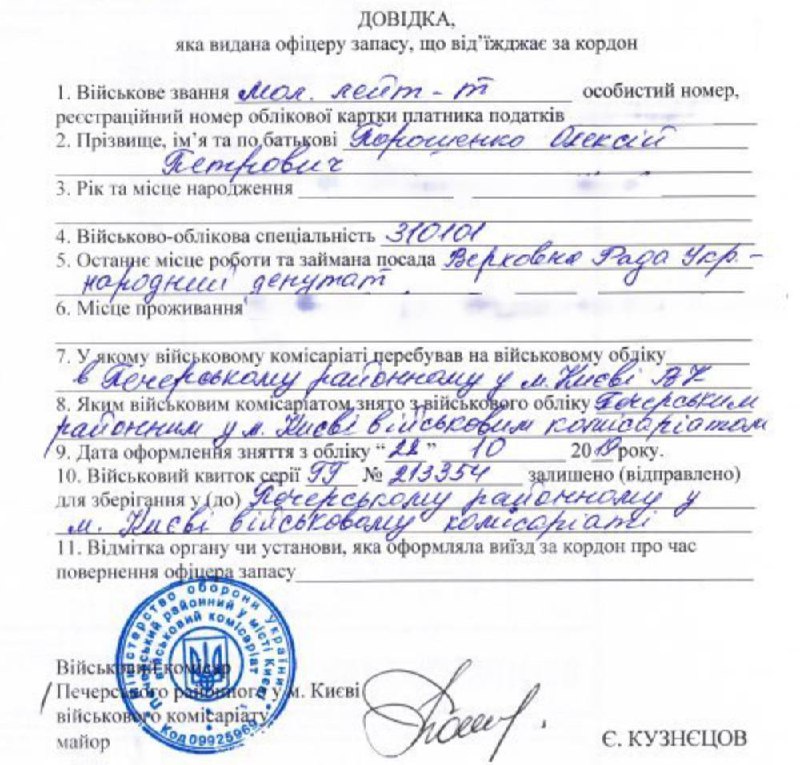 ДОВІДКА,
яка видана офіцеру запасу, що від’їжджає за кордон
1. Військове звання мол. лейт-т особистий номер,
реєстраційний номер облікової картки платника податків
2. Прізвище, ім’я та по батькові Порошенко Олексій
Петрович
3. Рік та місце народження
4. Військово-облікова спеціальність 310101
5. Останнє місце роботи та займана посада Верховна Рада Укр.-
народний депутат
6. Місце проживання
7. У якому військовому комісаріаті перебував на військовому обліку
в Печерському районному у м. Києві ВК
8. Яким військовим комісаріатом знято з військового обліку Печерським
районним у м. Києві військовим комісаріатом
9. Дата оформлення зняття з обліку “ 22 ” 10 20 року.
10. Військовий квиток серії ГГ № 213354 залишено (відправлено)
для зберігання у (до) Печерському районному у
м. Києві військовому комісаріаті
11. Відмітка органу чи установи, яка оформляла виїзд за кордон про час
повернення офіцера запасу
Міністерство оборони України
Печерський районний у місті Києві
військовий комісаріат
код 09925969
Військовий комісар
Печерського районного у м. Києві
військового комісаріату
майор
Є. КУЗНЄЦОВ